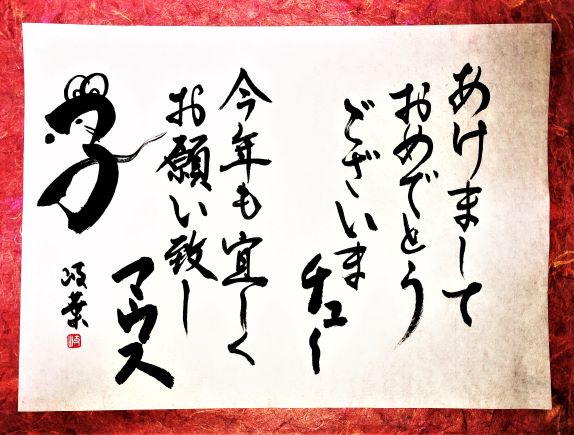 あけまして
おめでとう
ございま
チュー
今年も宜しく
お願い致し
マウス
子